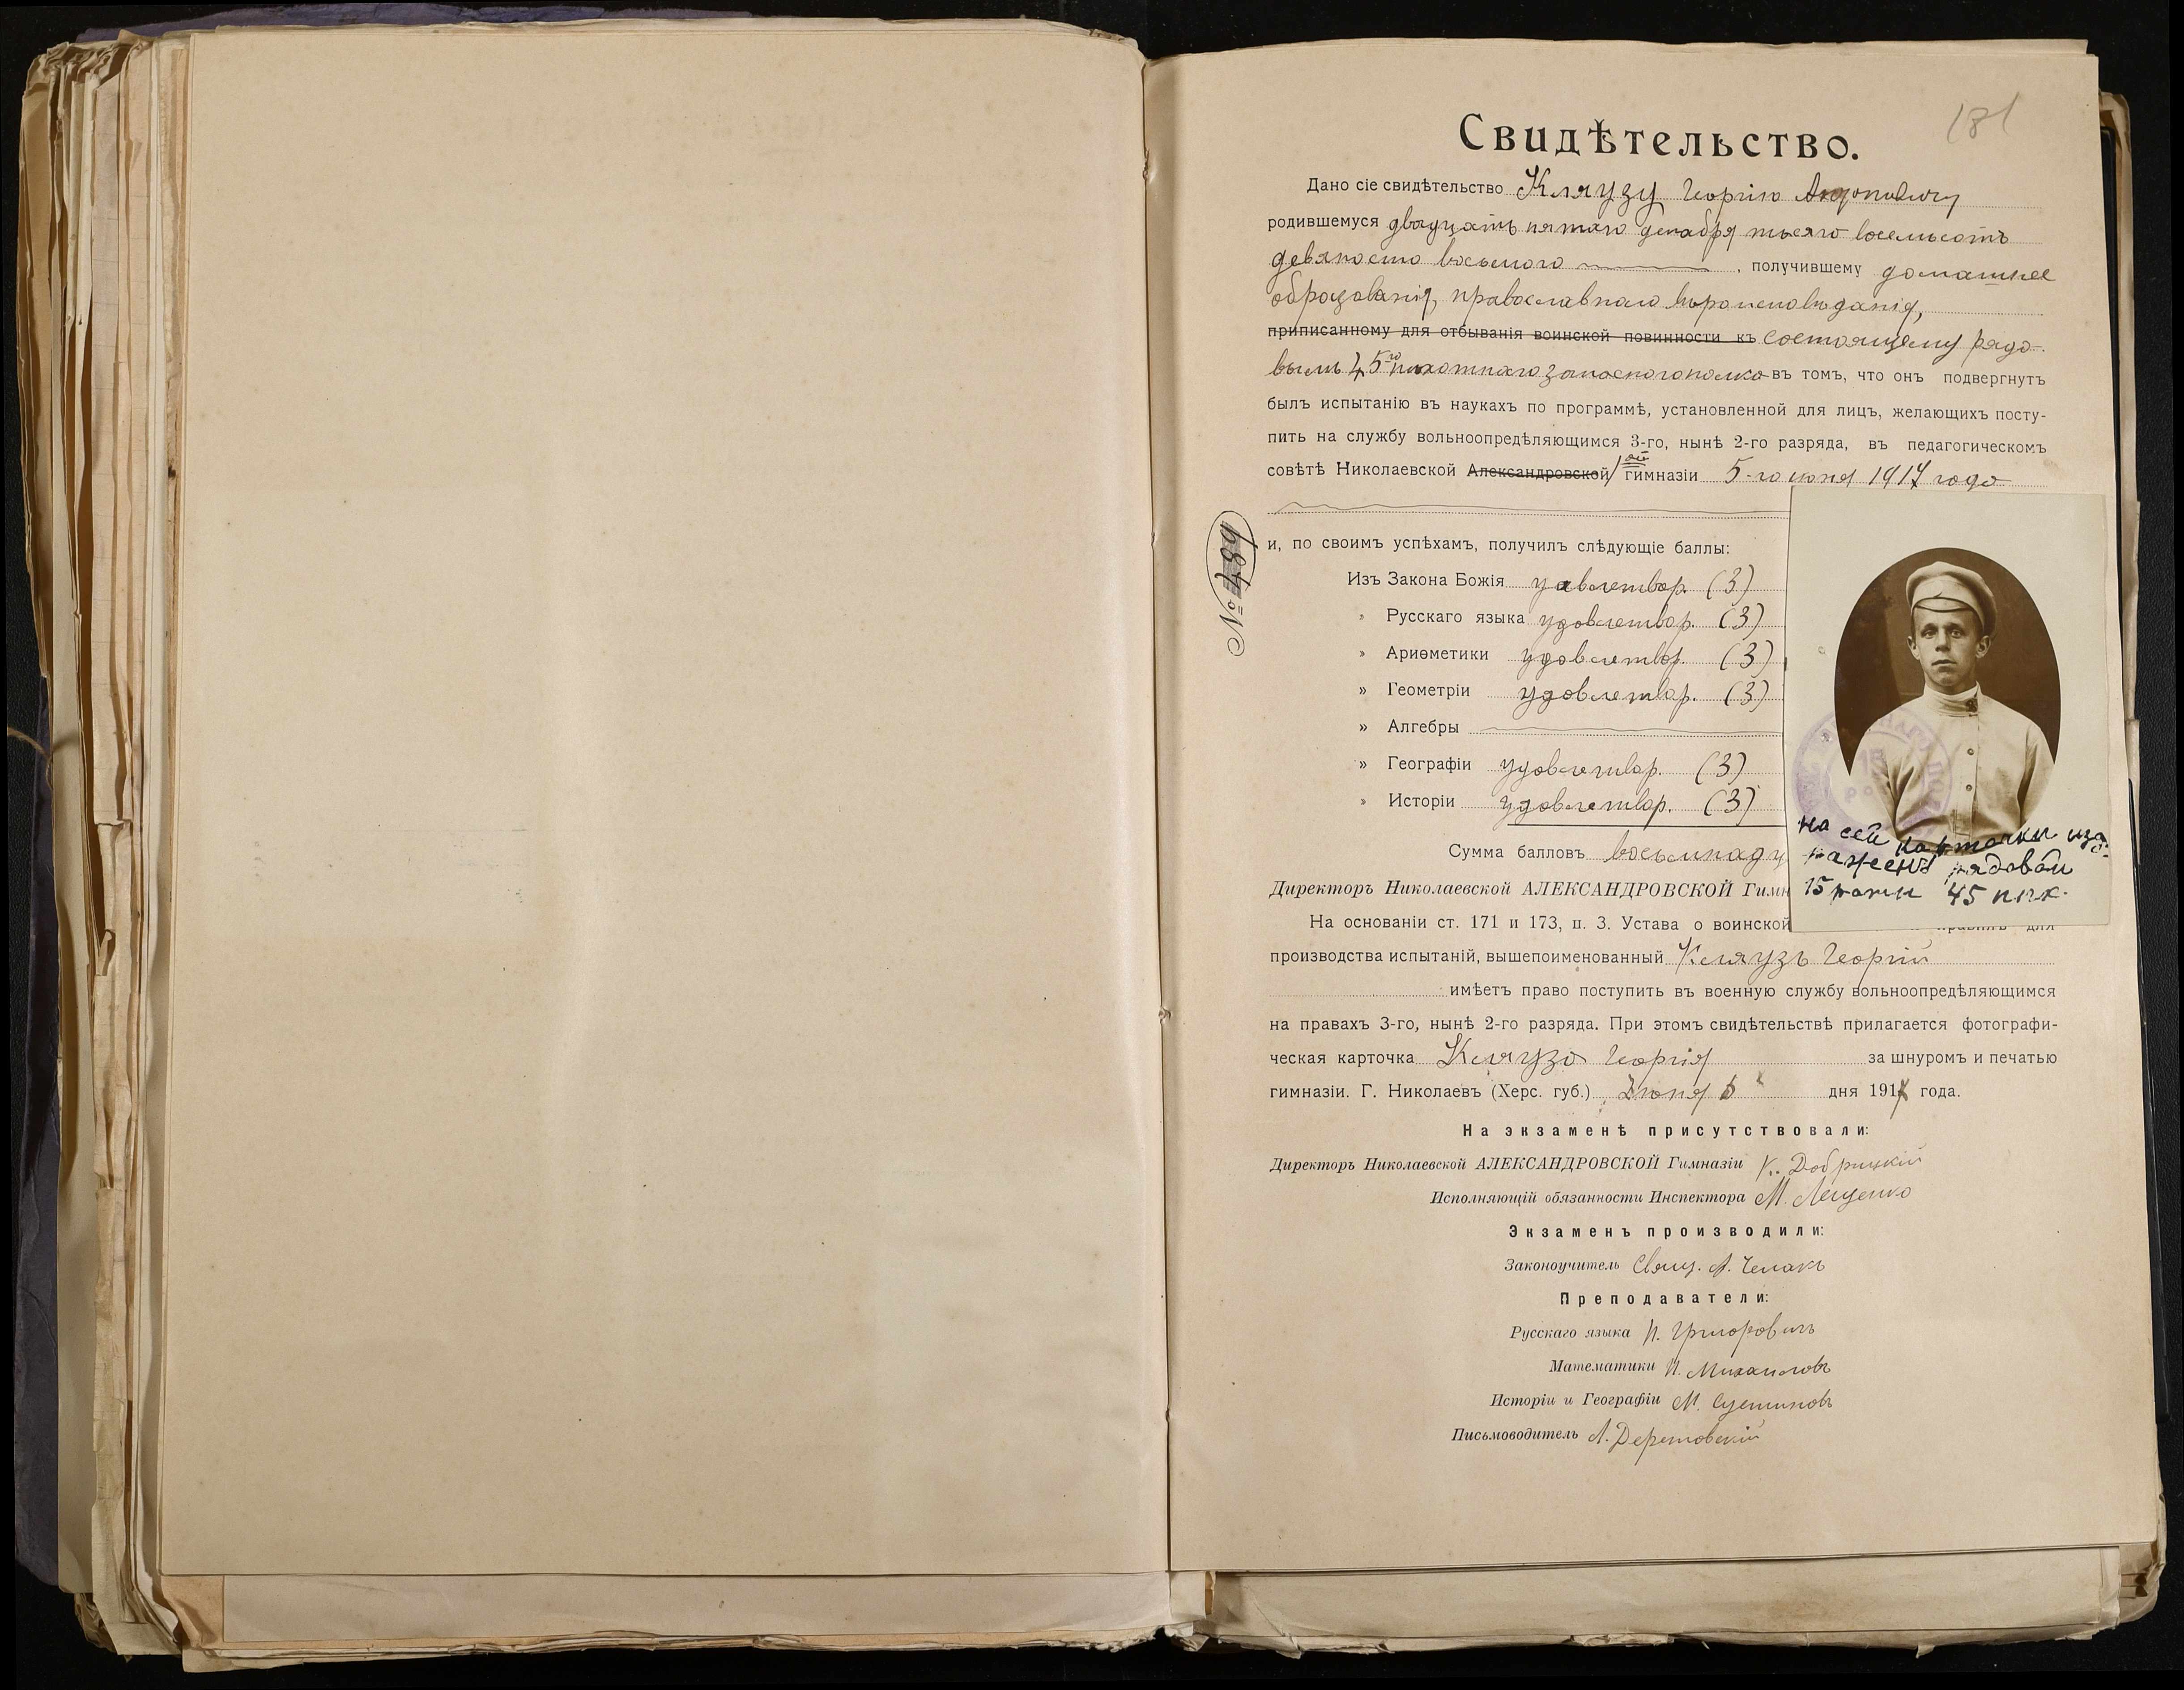 181
Свидѣтельство.
Дано сіе свидѣтельство Кляузу Георгію
родившемуся двадцать пятаго декабря тысяча восемьсотъ
девяносто восьмого, получившему домашнее
образованіе, православнаго вѣроисповѣданія,
приписанному для отбыванія воинской повинности къ состоящему рядо-
вымъ 45го пѣхотнаго запаснаго полка въ томъ, что онъ подвергнутъ
былъ испытанію въ наукахъ по программѣ, установленной для лицъ, желающихъ посту-
пить на службу вольноопредѣляющимся 3-го, нынѣ 2-го разряда, въ педагогическомъ
совѣтѣ Николаевской Александровской гимназіи 5-го іюня 1917 года
№ 489
и, по своимъ успѣхамъ, получилъ слѣдующіе баллы:
Изъ Закона Божія удовлетвор. (3)
» Русскаго языка удовлетвор. (3)
» Ариѳметики удовлетвор. (3)
» Геометріи удовлетвор. (3)
» Алгебры
» Географіи удовлетвор. (3)
» Исторіи удовлетвор. (3)
Сумма балловъ восемнадц
Директоръ Николаевской АЛЕКСАНДРОВСКОЙ Гимн
На сей карточки изо-
бражены рядовой
15 роты 45 п.п.к.
На основаніи ст. 171 и 173, п. 3. Устава о воинской правилъ для
производства испытаній, вышепоименованный Кляузъ Георгій
имѣетъ право поступить въ военную службу вольноопредѣляющимся
на правахъ 3-го, нынѣ 2-го разряда. При этомъ свидѣтельствѣ прилагается фотографи-
ческая карточка Кляуза Георгія за шнуромъ и печатью
гимназіи. Г. Николаевъ (Херс. губ.) Іюня 5 дня 1917 года.
На экзаменѣ присутствовали:
Директоръ Николаевской АЛЕКСАНДРОВСКОЙ Гимназіи К. Добрицкій
Исполняющій обязанности Инспектора М. Лещенко
Экзаменъ производили:
Законоучитель Свящ. А. Чемакъ
Преподаватели:
Русскаго языка П. Григоровичъ
Математики П. Михайловъ
Исторіи и Географіи М. Сустиновъ
Письмоводитель А. Дерешовскій